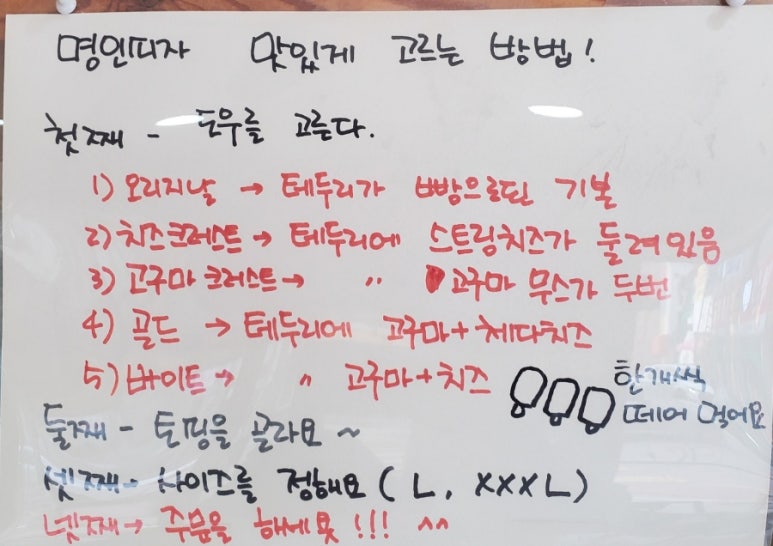 명인피자 맛있게 고르는 방법!
첫째 - 도우를 고른다.
1) 오리지날 → 테두리가 빵으로된 기본
2) 치즈크러스트 → 테두리에 스트링치즈가 둘려있음
3) 고구마 크러스트 → 〃 고구마 무스가 두번
4) 골드 → 테두리에 고구마+체다치즈
5) 바이트 → 〃 고구마+치즈 한개씩
떼어 먹어요
둘째 - 토핑을 골라요 ~
셋째 - 사이즈를 정해요 ( L, XXXL )
넷째 → 주문을 해세욧!!! ^^